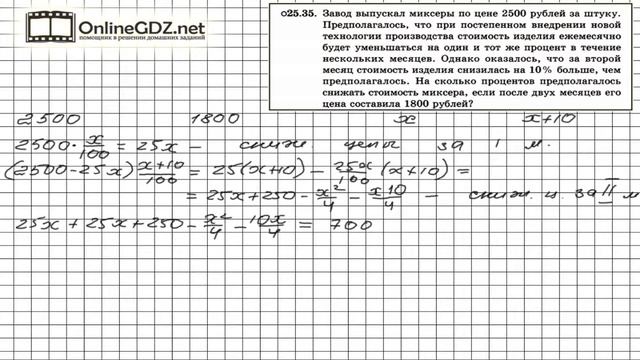 OnlineGDZ.net
помощник в решении домашних заданий
25.35. Завод выпускал миксеры по цене 2500 рублей за штуку.
Предполагалось, что при постепенном внедрении новой
технологии производства стоимость изделия ежемесячно
будет уменьшаться на один и тот же процент в течение
нескольких месяцев. Однако оказалось, что за второй
месяц стоимость изделия снизилась на 10% больше, чем
предполагалось. На сколько процентов предполагалось
снижать стоимость миксера, если после двух месяцев его
цена составила 1800 рублей?
2500 1800 x x+10
2500·x/100 = 25x – сниж. цены за I м.
(2500-25x)x+10/100 = 25(x+10) – 25x/100(x+10) =
= 25x+250 – x²/4 – x10/4 – сниж. ц. за II м
25x + 25x + 250 – x²/4 – 10x/4 = 700